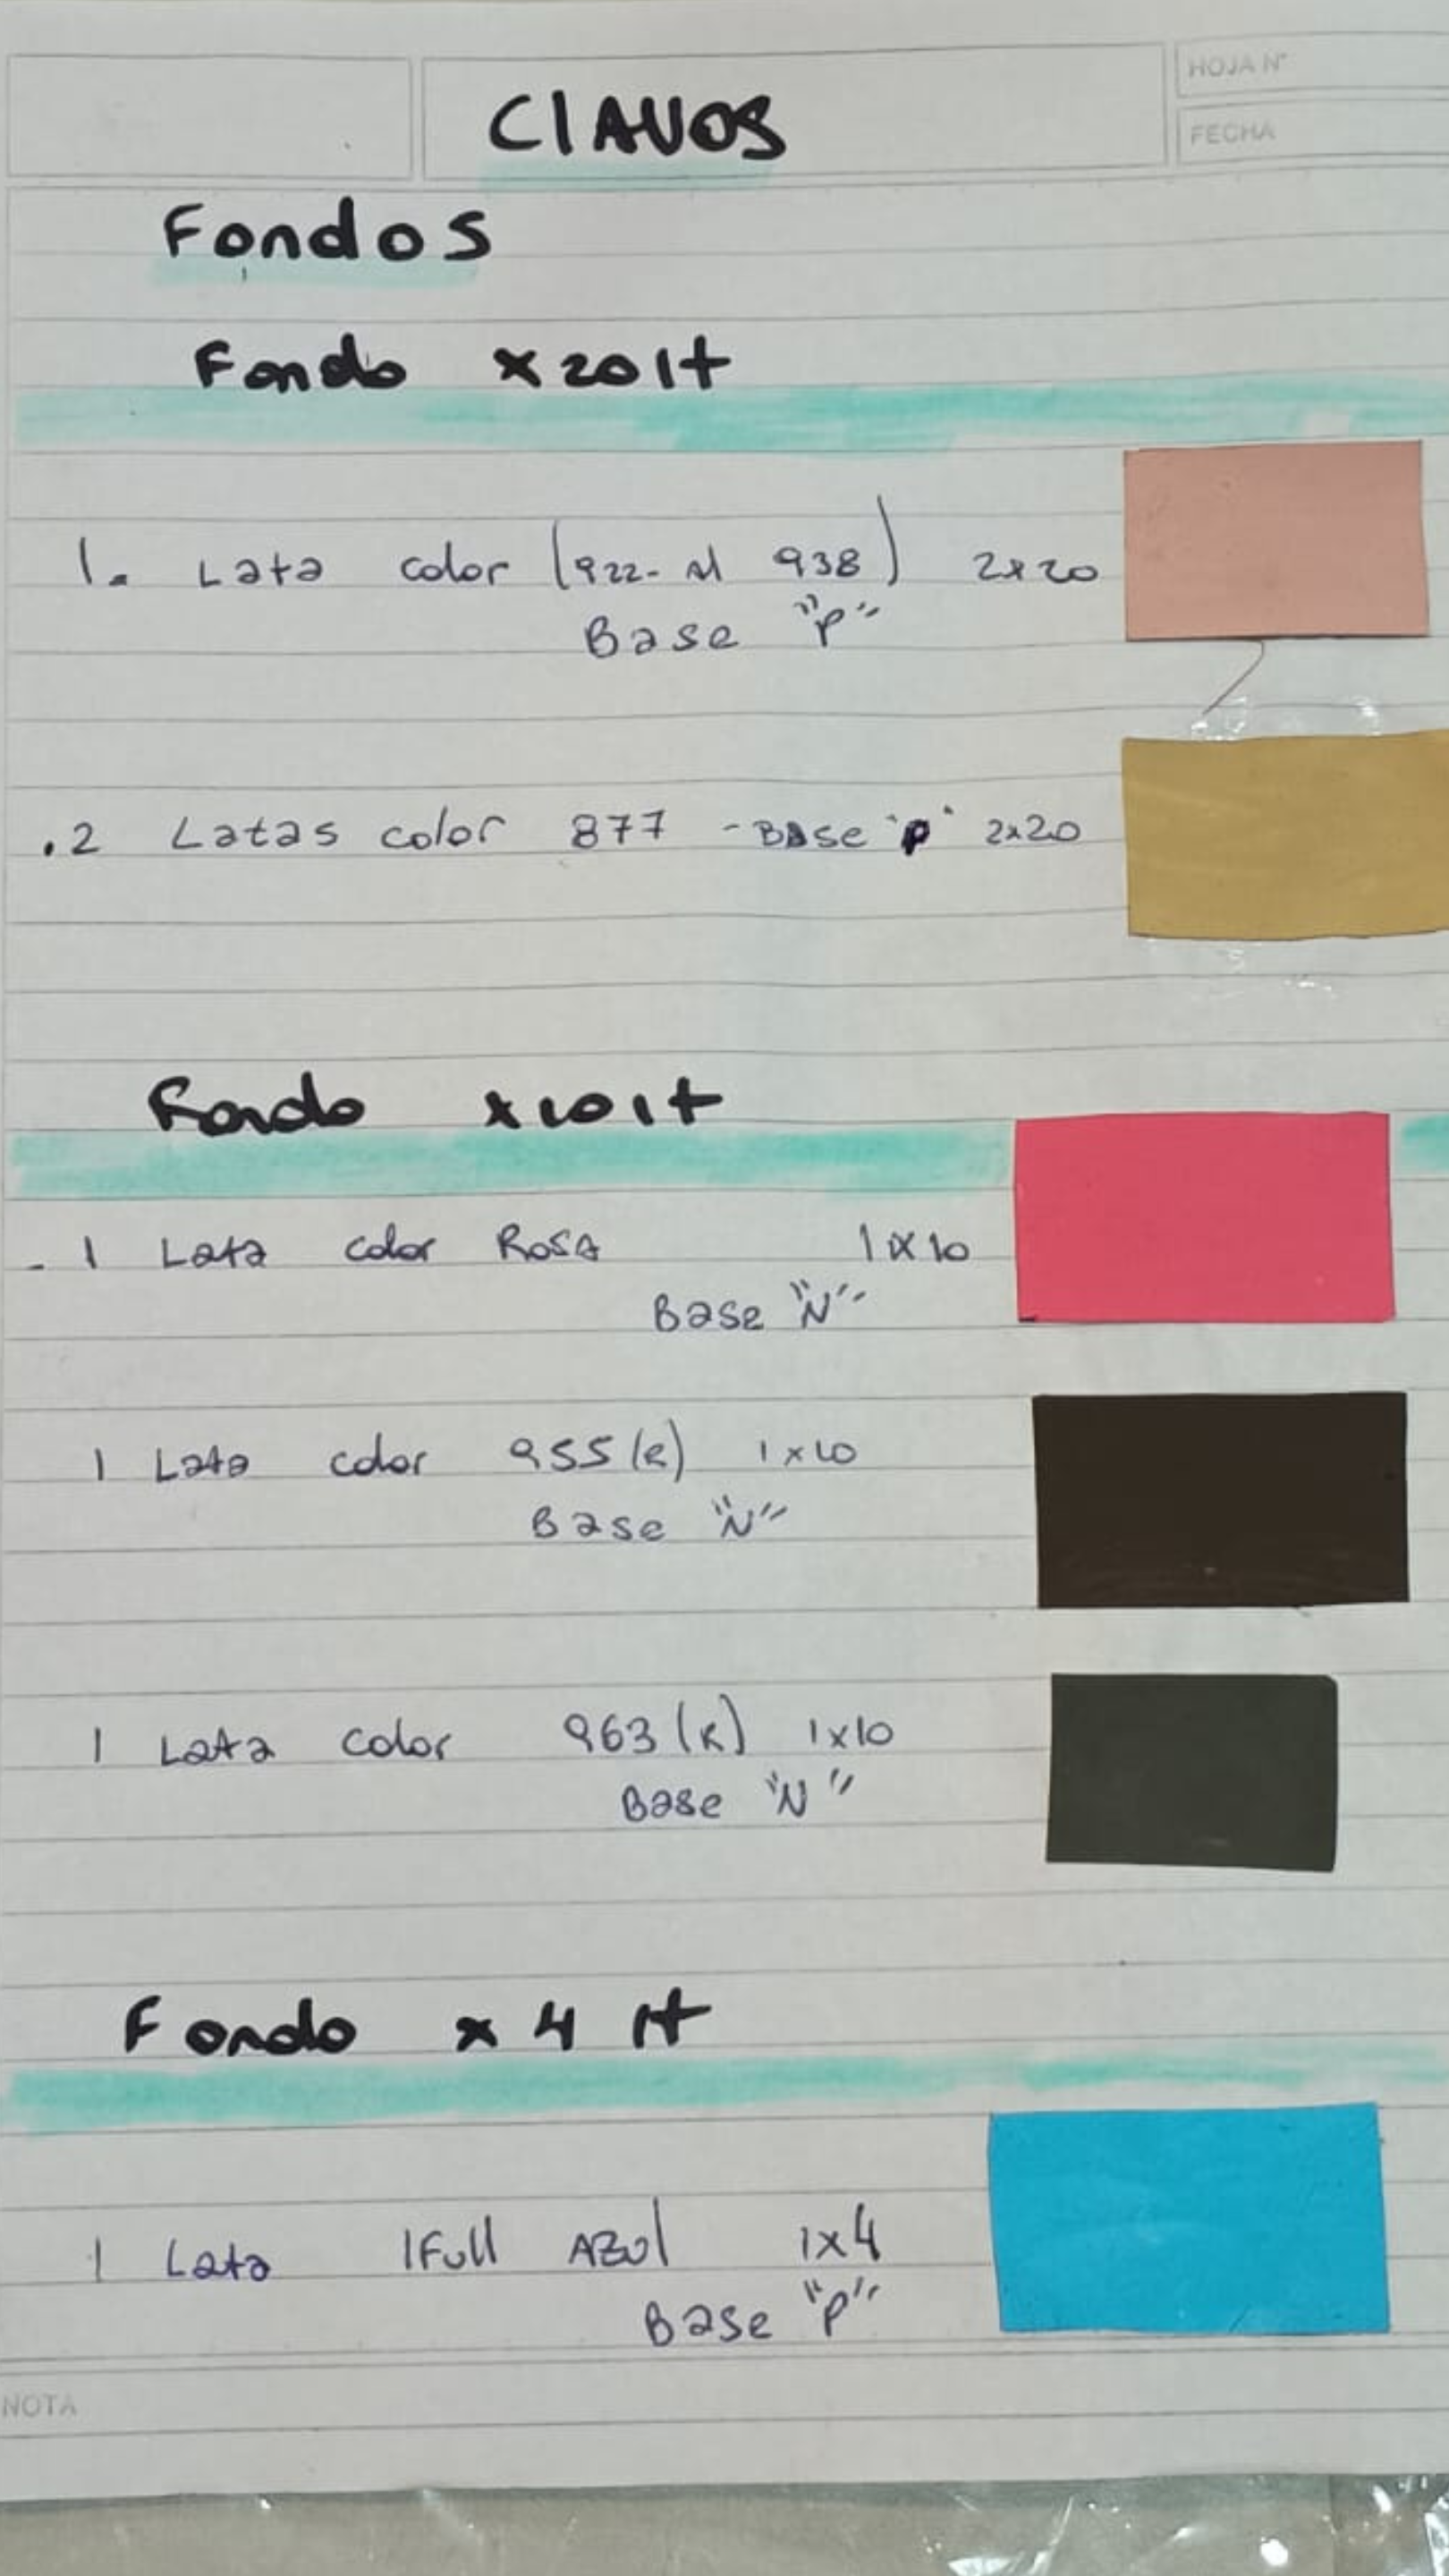 ClAVOS
HOJA N°
FECHA
Fondos
Fondo x20lt
1. Lata color (922- al 938) 2x20
Base "P"
.2 Latas color 877 - Base "P" 2x20
Fondo x10lt
- 1 Lata color ROSA 1x10
Base "N"
1 Lata color 955 (R) 1x10
Base "N"
1 Lata color 963 (R) 1x10
Base "N"
Fondo x 4 lt
1 Lata Full AZUl 1x4
Base "P"
NOTA